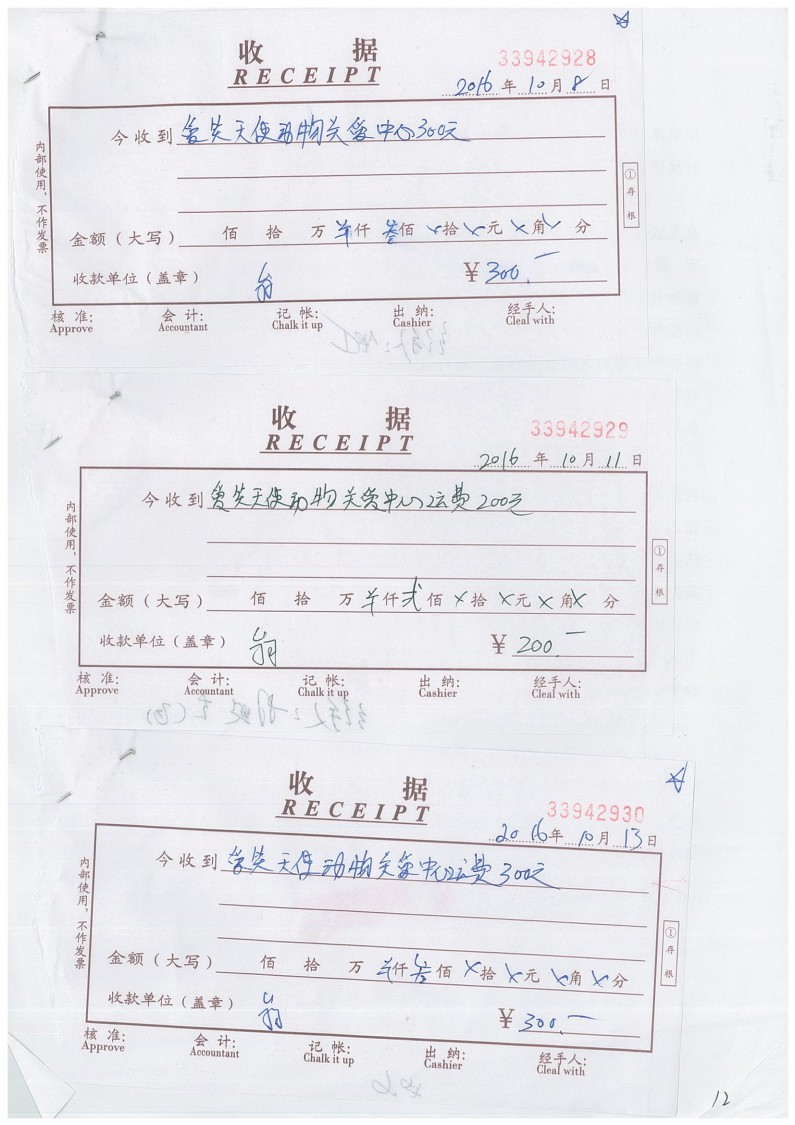 收 据
33942928
RECEIPT
2016 年 10 月 8 日
今收到 爱笑天使动物关爱中心300元
内部使用，不作发票
①存根
金额（大写） 佰 拾 万 仟 叁佰 ×拾 ×元 ×角 × 分
收款单位（盖章） ¥ 300.一
核 准: 会 计: 记 帐: 出 纳: 经手人:
Approve Accountant Chalk it up Cashier Cleal with
收 据
33942929
RECEIPT
2016 年 10 月 11 日
今收到 爱笑天使动物关爱中心运费200元
内部使用，不作发票
①存根
金额（大写） 佰 拾 万 仟 贰佰 ×拾 ×元 ×角 × 分
收款单位（盖章） ¥ 200.一
核 准: 会 计: 记 帐: 出 纳: 经手人:
Approve Accountant Chalk it up Cashier Cleal with
收 据
33942930
RECEIPT
2016年 10 月 13 日
今收到 爱笑天使动物关爱中心运费300元
内部使用，不作发票
①存根
金额（大写） 佰 拾 万 仟 叁佰 ×拾 ×元 ×角 × 分
收款单位（盖章） ¥ 300.一
核 准: 会 计: 记 帐: 出 纳: 经手人:
Approve Accountant Chalk it up Cashier Cleal with
12